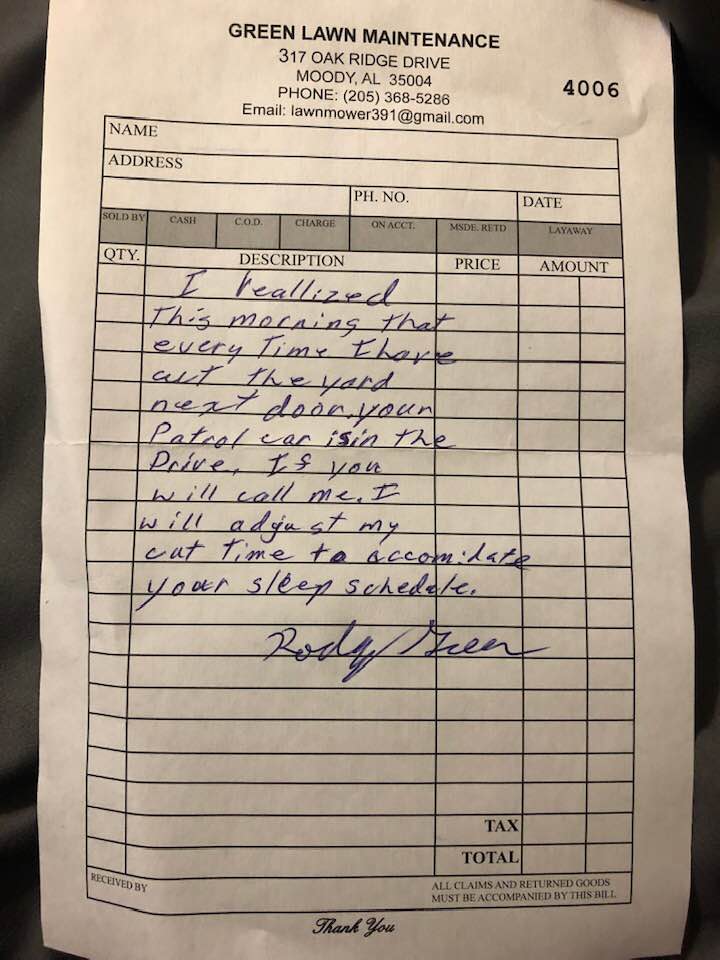 GREEN LAWN MAINTENANCE
317 OAK RIDGE DRIVE
MOODY, AL 35004
PHONE: (205) 368-5286
Email: lawnmower391@gmail.com
4006
NAME
ADDRESS
PH. NO. DATE
SOLD BY CASH C.O.D. CHARGE ON ACCT. MSDE. RETD LAYAWAY
QTY. DESCRIPTION PRICE AMOUNT
I reallized
This morning that
every Time I have
cut the yard
next door, your
Patrol car is in the
Drive. If you
will call me, I
will adjust my
cut Time to accomidate
your sleep schedule.
Rody Green
TAX
TOTAL
RECEIVED BY
ALL CLAIMS AND RETURNED GOODS
MUST BE ACCOMPANIED BY THIS BILL
Thank You